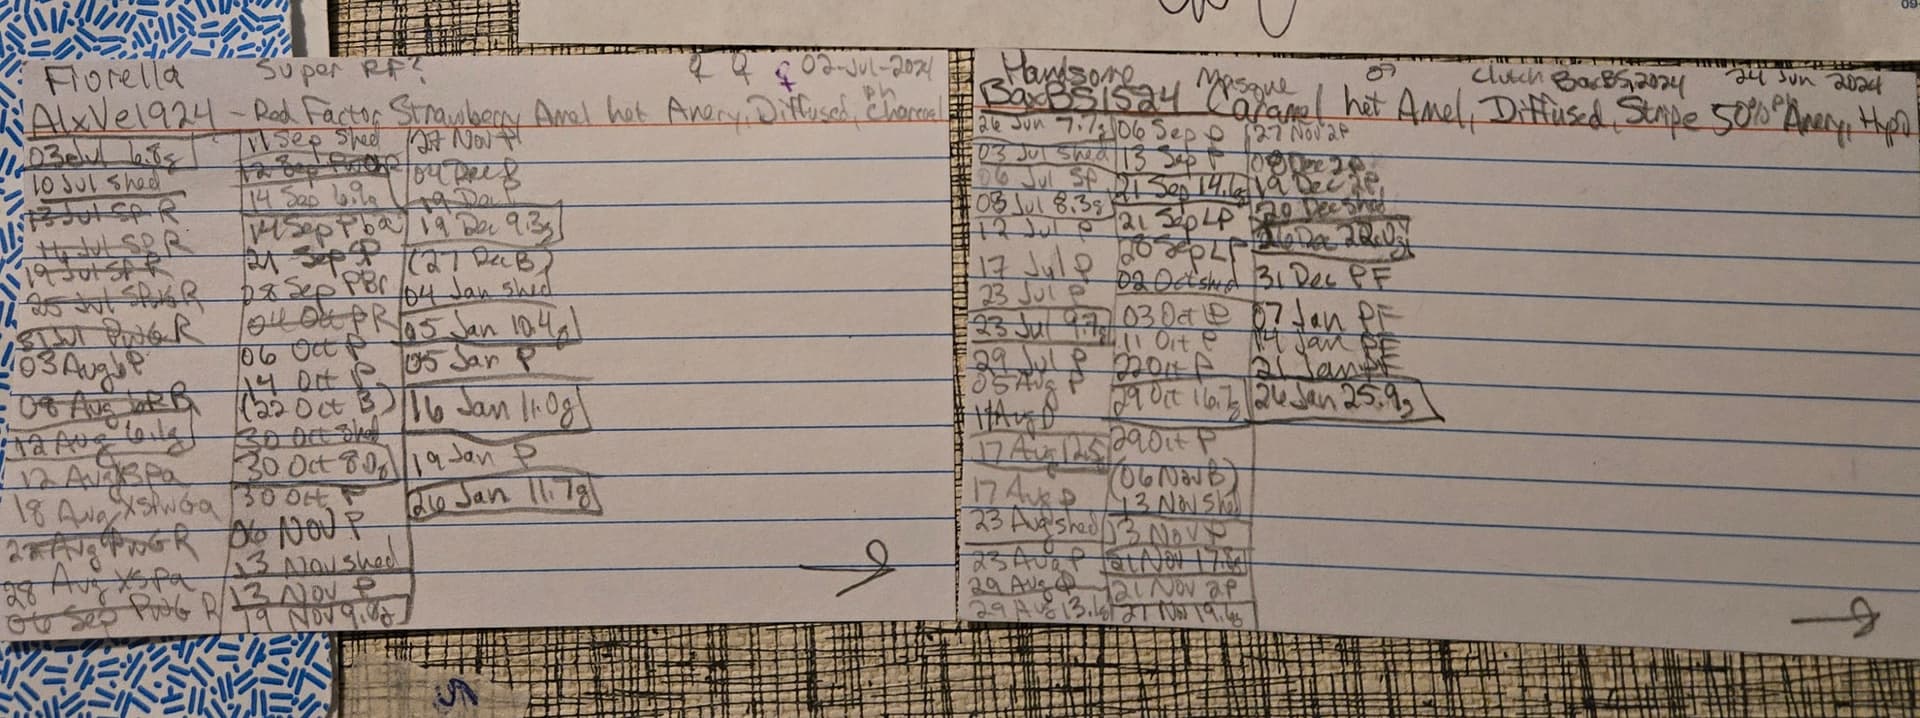 Fiorella Super RF? ♀ ♀ ♀ 02-Jul-2024
AlxVe1924 - Red Factor Strawberry Amel het Anery, Diffused, ph Charcoal
03 Jul 6.8g
10 Jul Shed
13 Jul SP R
14 Jul SP R
19 Jul SP R
25 Jul SPWG R
31 Jul PWG R
03 Aug P
08 Aug R
12 Aug 6.1g
12 Aug XSPa
18 Aug XSPWGa
Aug PWG R
28 Aug XSPa
06 Sep PWG R
11 Sep Shed
12 Sep
14 Sep 6.9g
14 Sep Pba
21 Sep SP
28 Sep PBr
04 Oct PR
06 Oct P
14 Oct P
(22 Oct B)
30 Oct Shed
30 Oct 8.0g
30 Oct P
06 Nov P
13 Nov shed
13 Nov P
19 Nov 9.8g
27 Nov P
04 Dec P
19 Dec
19 Dec 9.3g
(27 Dec B)
04 Jan shed
05 Jan 10.4g
05 Jan P
16 Jan 11.0g
19 Jan P
26 Jan 11.7g
Handsome Masque ♂ Clutch BaxBS,2024 24 Jun 2024
BaxBS1524 Caramel het Amel, Diffused, Stripe 50% ph Anery, Hypo
26 Jun 7.7g
03 Jul Shed
06 Jul SP
08 Jul 8.3g
12 Jul P
17 Jul P
23 Jul P
23 Jul 9.7g
29 Jul P
05 Aug P
11 Aug P
17 Aug 12.5
17 Aug P
23 Aug shed
23 Aug P
29 Aug P
29 Aug 13.1g
06 Sep P
13 Sep P
21 Sep 14.6g
21 Sep LP
28 Sep LP
02 Oct shed
03 Oct P
11 Oct P
22 Oct P
29 Oct 16.7g
29 Oct P
(06 Nov B)
13 Nov Shed
13 Nov P
21 Nov 17.8g
21 Nov 2P
27 Nov 19.6g
27 Nov 2P
08 Dec 2P
19 Dec 2P
20 Dec shed
26 Dec 22.0g
31 Dec PF
07 Jan PF
14 Jan PF
21 Jan PF
26 Jan 25.9g